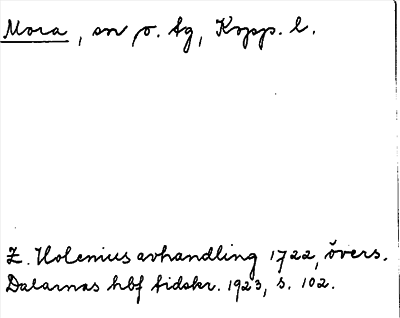 Mora, sn o. tg, Kopp. l.
Z. Holenius avhandling 1722, övers.
Dalarnas hbf tidskr. 1923, s. 102.